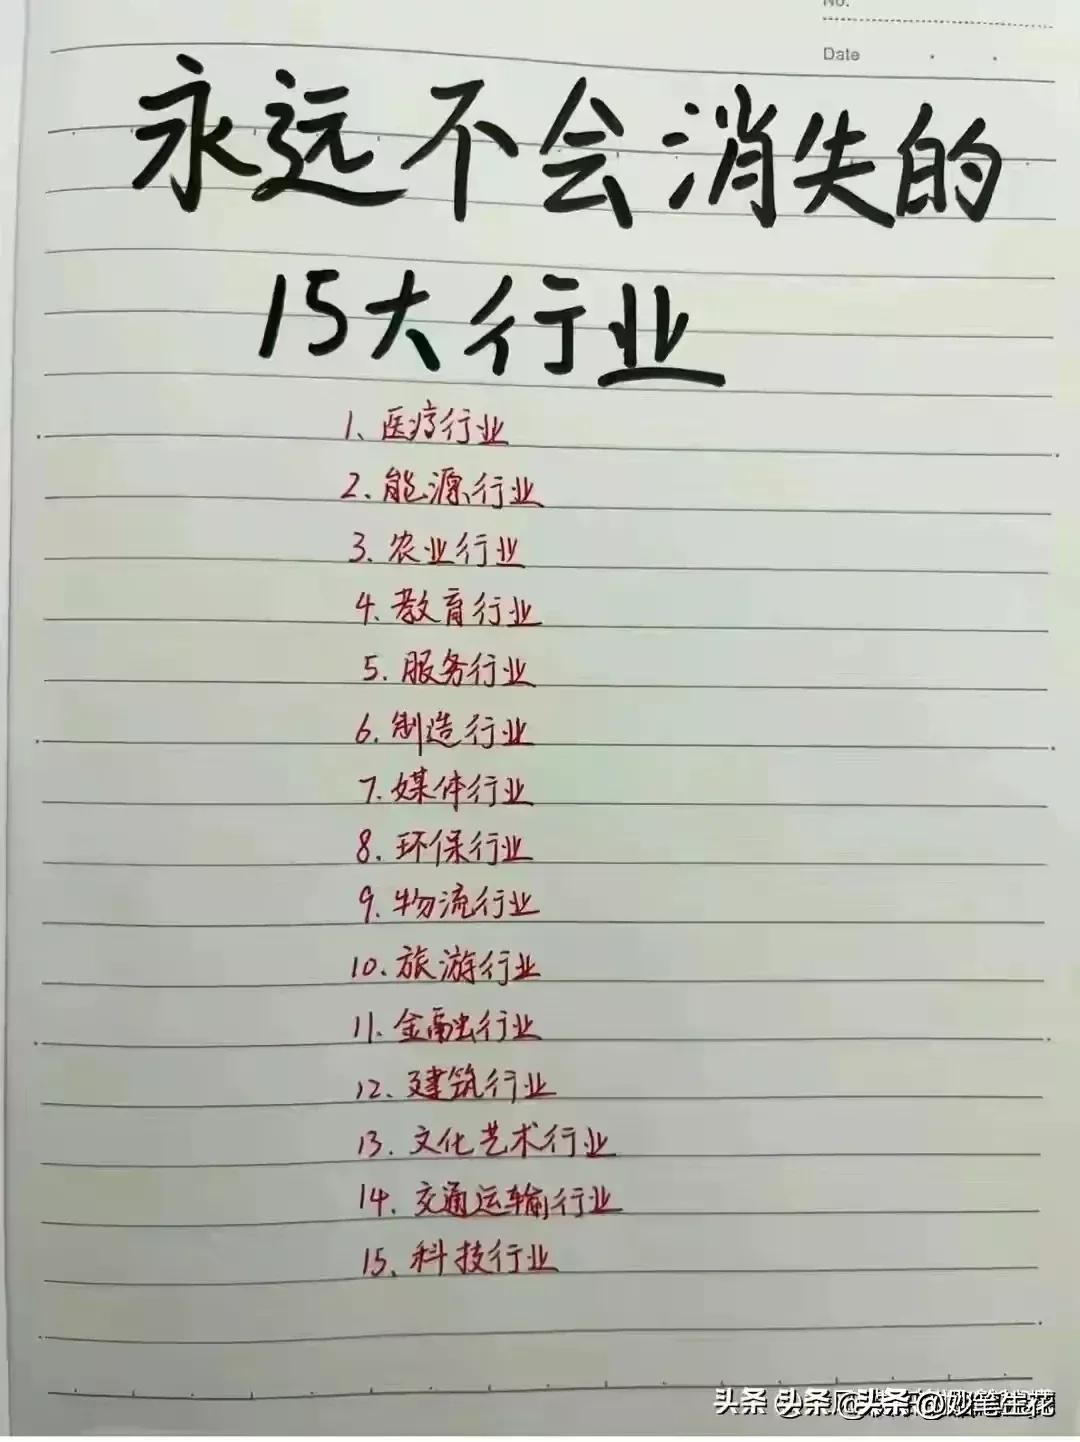 No.
Date
永远不会消失的
15大行业
1、医疗行业
2、能源行业
3、农业行业
4、教育行业
5、服务行业
6、制造行业
7、媒体行业
8、环保行业
9、物流行业
10、旅游行业
11、金融行业
12、建筑行业
13、文化艺术行业
14、交通运输行业
15、科技行业
头条 头条 @头条 @妙笔生花